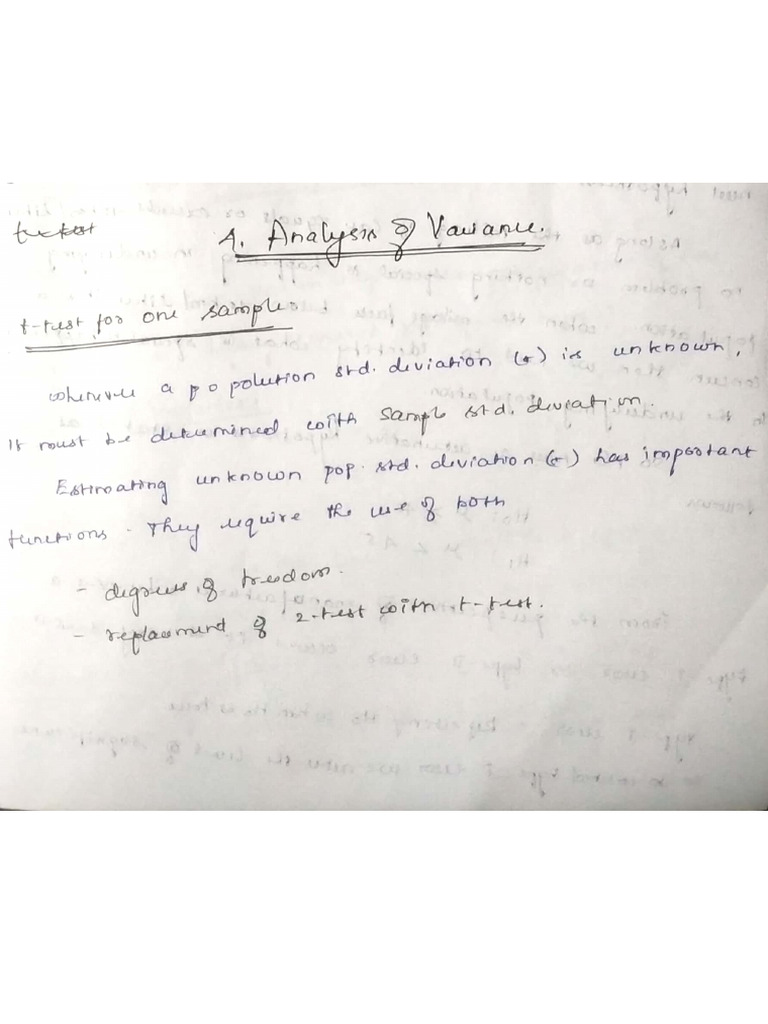 4. Analysis of Variance.
t-test for one sample.
wherever a population std. deviation (σ) is unknown,
It must be determined with sample std. deviation.
Estimating unknown pop. std. deviation (σ) has important
functions. They require the use of both
- degrees of freedom.
- replacement of z-test with t-test.